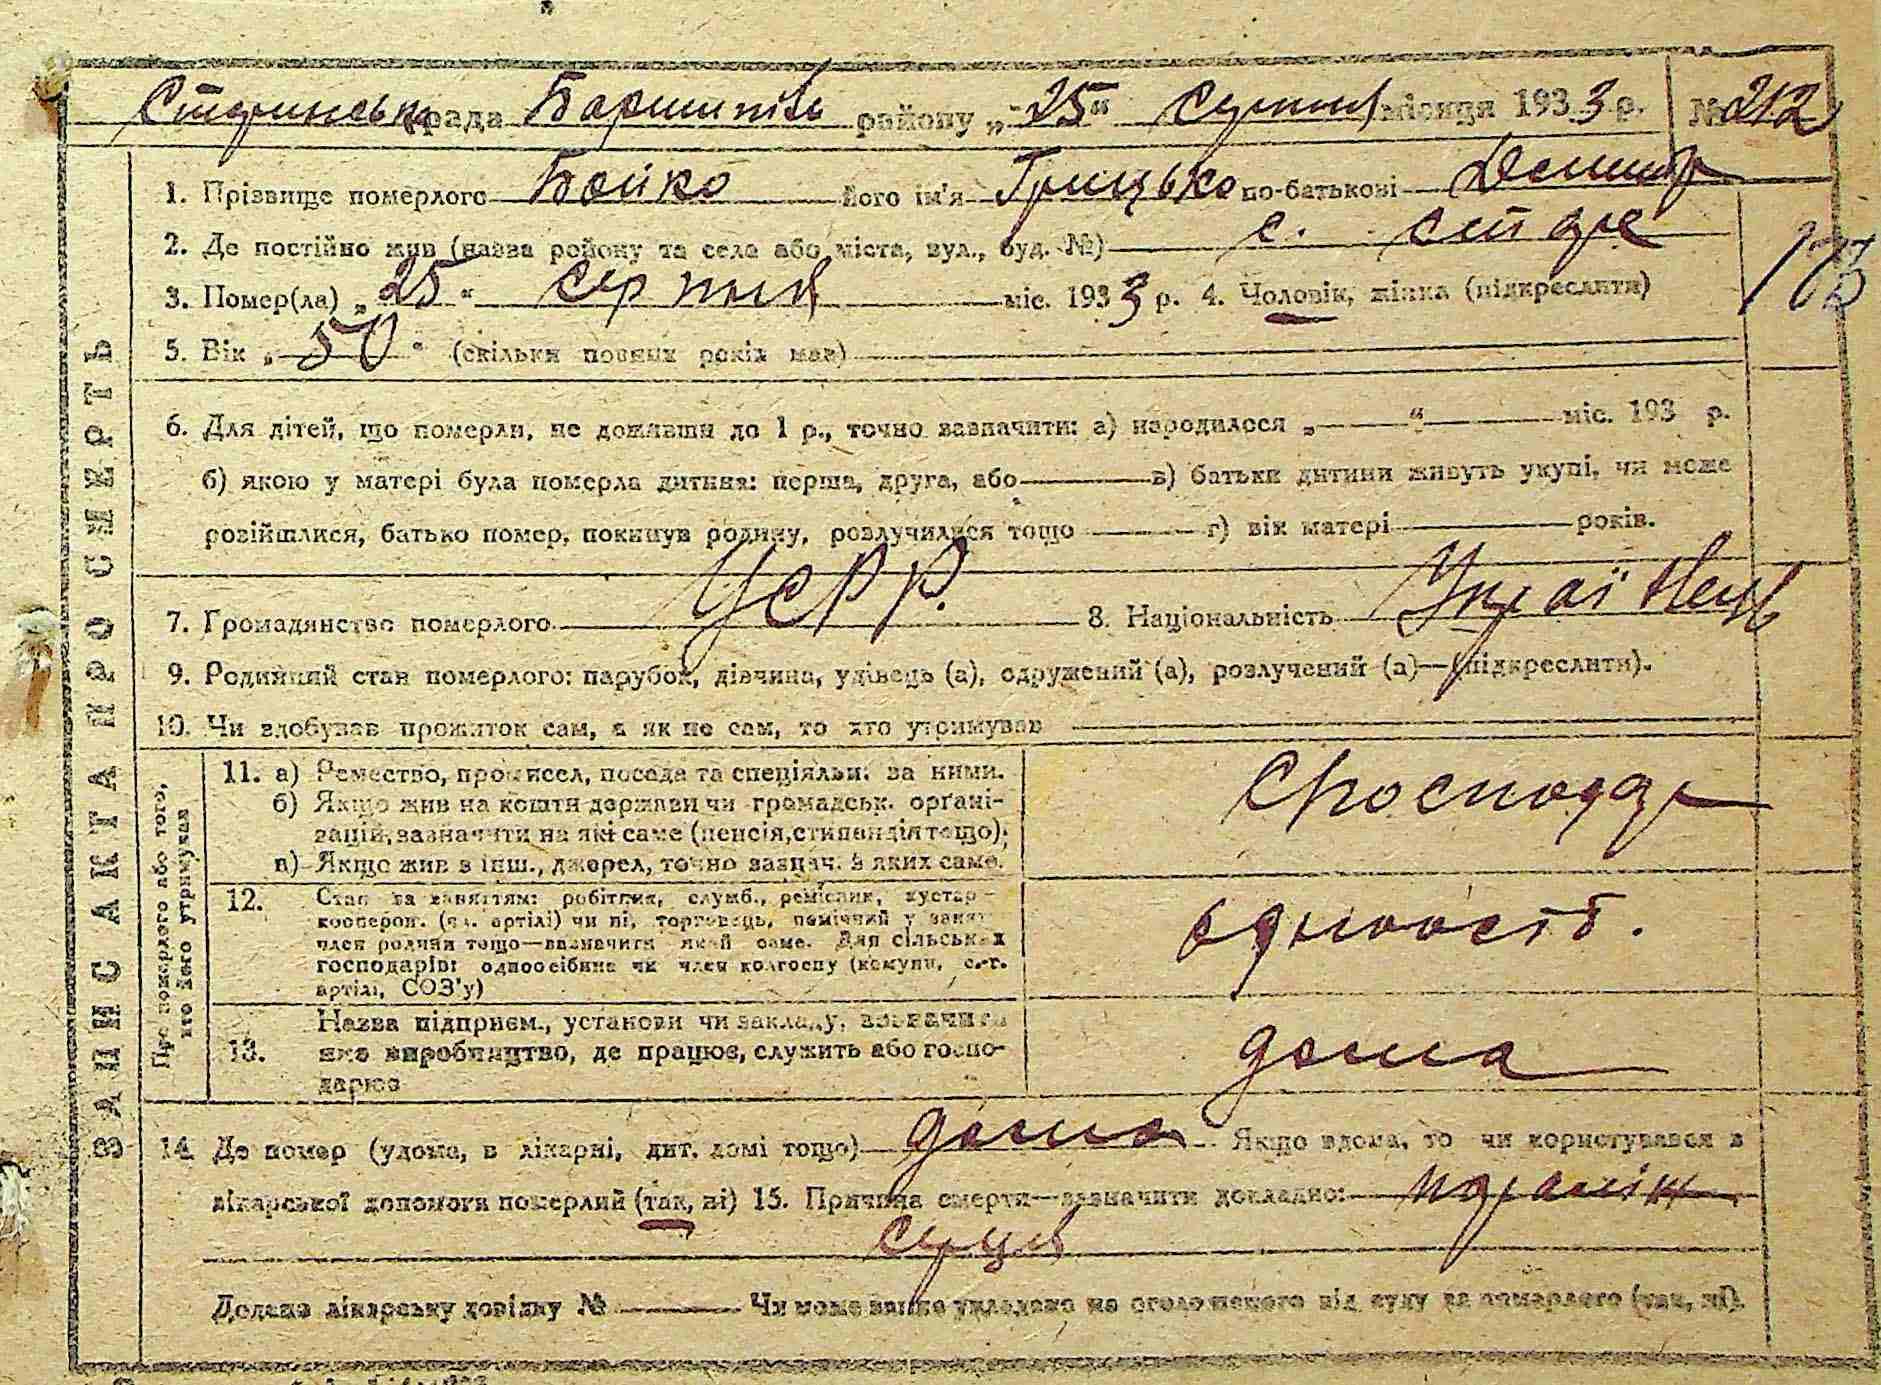 Старинська рада Баришпіль району „25“ серпня місяця 1933 р. № 212
1. Прізвище померлого Бойко його ім'я Грицько по-батькові Демид
2. Де постійно жив (назва району та села або міста, вул., буд. №) с. Старе
173
3. Помер(ла) „25“ серпня міс. 1933 р. 4. Чоловік, жінка (підкреслити)
5. Вік „50“ (скільки повних років мав)
6. Для дітей, що померли, не доживши до 1 р., точно зазначити: а) народилося „ “ міс. 193 р.
б) якою у матері була померла дитина: перша, друга, або в) батьки дитини живуть укупі, чи може
розійшлися, батько помер, покинув родину, розлучилися тощо г) вік матері років.
7. Громадянство померлого УСРР. 8. Національність Українець
9. Родинний стан померлого: парубок, дівчина, удівець (а), одружений (а), розлучений (а)—(підкреслити).
10. Чи здобував прожиток сам, а як не сам, то хто утримував
ЗАПИС АКТА ПРО СМЕРТЬ
Про померлого або того, хто його утримував
11. а) Ремество, промисел, посада та спеціяльн. за ними.
б) Якщо жив на кошти держави чи громадськ. організацій, зазначити на які саме (пенсія, стипендія тощо);
в) Якщо жив з інш., джерел, точно зазнач. з яких саме.
12. Стан за заняттям: робітник, служб., ремісник, кустар—
кооперов. (чл. артілі) чи ні, торговець, помічний у занят.
член родини тощо—зазначити який саме. Для сільських
господарів: одноосібник чи член колгоспу (комуни, с.-г.
артілі, СОЗ'у)
одноосіб.
13. Назва підприєм., установи чи закладу, зазначити
яке виробництво, де працює, служить або госпо-
дарює
дома
14. Де помер (удома, в лікарні, дит. домі тощо) дома Якщо вдома, то чи користувався з
лікарської допомоги померлий (так, ні) 15. Причина смерти—зазначити докладно:
серця
Додано лікарську довідку №